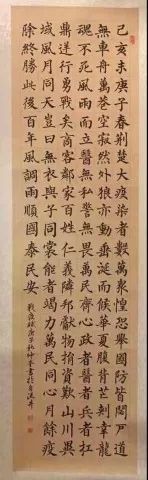 己亥末庚子春荊楚大疫染者數萬衆惶恐舉國防皆閉戶道
無車舟萬巷空寂然外狼亦動垂涎而華夏腹背芒刺幸龍
魂不死風雨而立醫無私警無畏萬民齊心政者醫者兵者扛
鼎逆行勇戰矣商客鄰家百姓仁義邦獻物捐資歎山川異
域風月同天豈曰無衣與子同裳能者竭力萬民同心月餘疫
除終勝此後百年風調雨順國泰民安